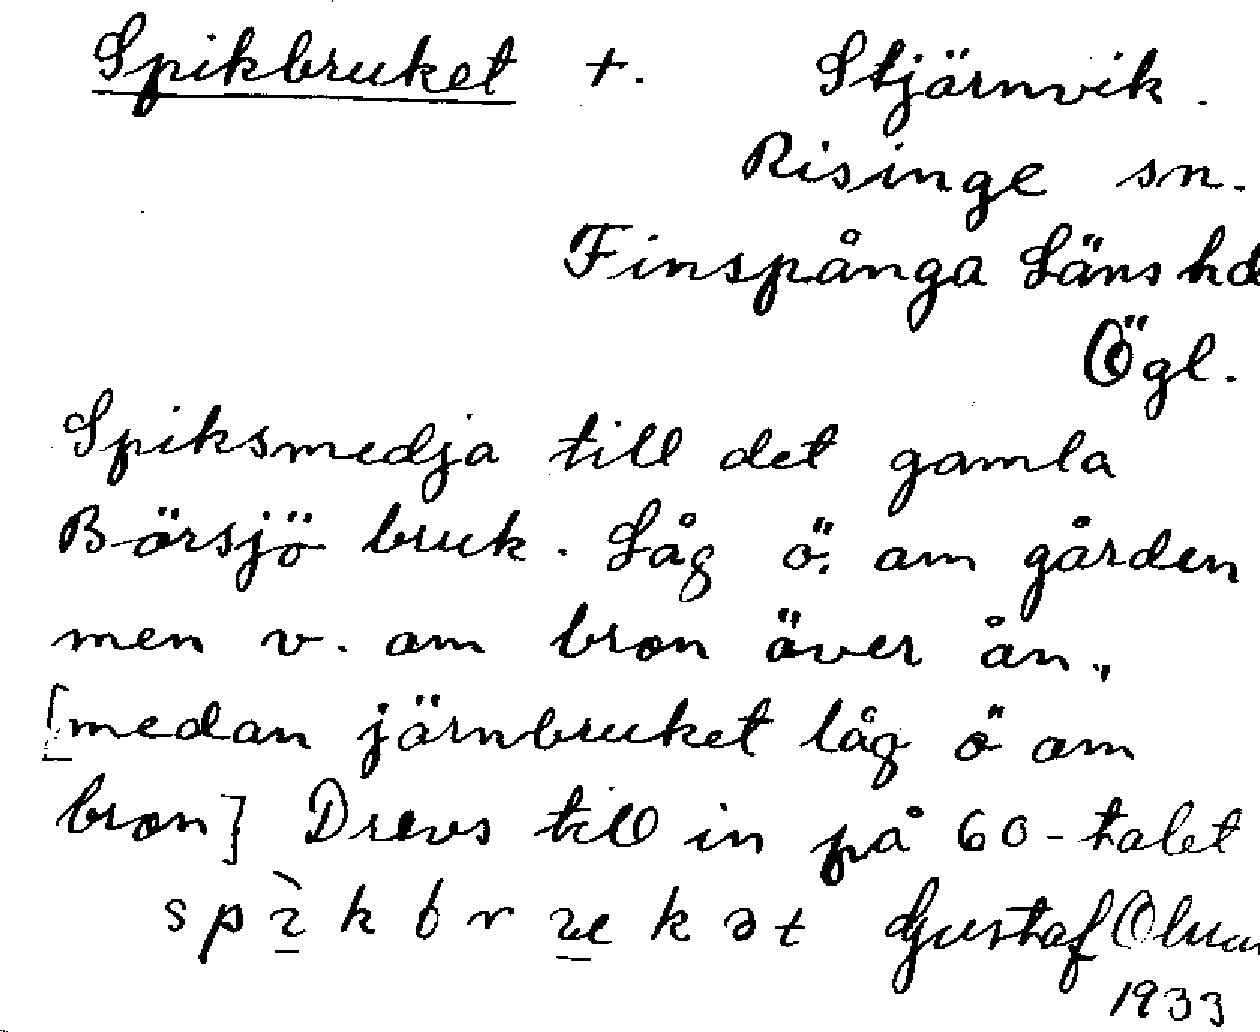 Spikbruket +. Stjärnvik.
Risinge sn.
Finspånga Läns hd
Ögl.
Spiksmedja till det gamla
Börsjö bruk. Låg ö. om gården
men v. om bron över ån,
[medan järnbruket låg ö om
bron] Drevs till in på 60-talet
Gustaf
1933